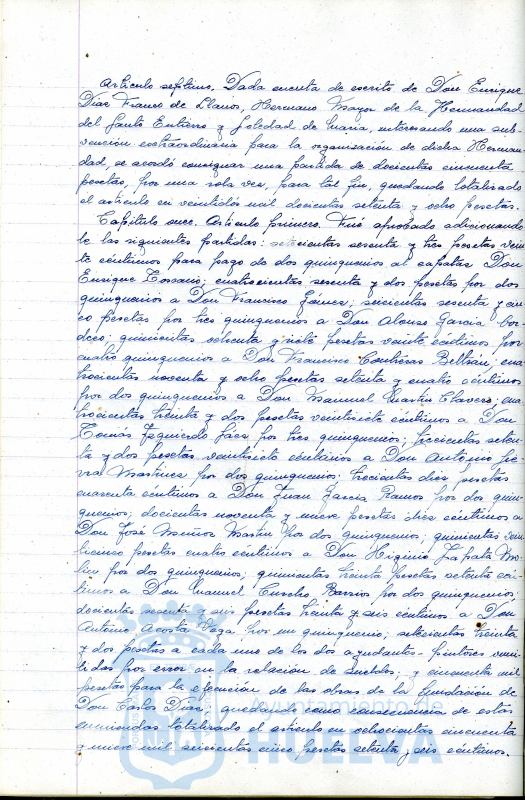 Artículo séptimo. Dada cuenta de escrito de Don Enrique
Díaz Franco de Llanos, Hermano Mayor de la Hermandad
del Santo Entierro y Soledad de María, interesando una sub-
vención extraordinaria para la organización de dicha Herman-
dad, se acordó consignar una partida de doscientas cincuenta
pesetas, por una sola vez, para tal fin, quedando totalizado
el artículo en veintidós mil doscientas setenta y ocho pesetas.
Capítulo once. Artículo primero. Fué aprobado adicionando
le las siguientes partidas: setecientas sesenta y tres pesetas vein
te céntimos para pago de dos quinquenios al capataz Don
Enrique Toscano; cuatrocientas sesenta y dos pesetas por dos
quinquenios a Don Francisco Gómez; seiscientas sesenta y cin
co pesetas por tres quinquenios a Don Alonso García Cor
dero; quinientas ochenta y siete pesetas veinte céntimos por
cuatro quinquenios a Don Francisco Contreras Beltrán; cua
trocientas noventa y ocho pesetas setenta y cuatro céntimos
por dos quinquenios a Don Manuel Martín Clavero; cua
trocientas treinta y dos pesetas veintisiete céntimos a Don
Tomás Izquierdo Sáez por tres quinquenios; trescientas seten
ta y dos pesetas veintisiete céntimos a Don Antonio
Martínez, por dos quinquenios; trescientas diez pesetas
cuarenta céntimos a Don Juan García Ramos por dos quin
quenios; doscientas noventa y nueve pesetas diez céntimos a
Don José Martín por dos quinquenios; quinientas vein
ticinco pesetas cuatro céntimos a Don Higinio Zapata Mo
por dos quinquenios; quinientas treinta pesetas setenta cén
timos a Don Manuel Barrios por dos quinquenios;
doscientas sesenta y seis pesetas treinta y seis céntimos a Don
Antonio Acosta Daza por un quinquenio; setecientas treinta
y dos pesetas a cada uno de los dos ayudantes-pintores omi
tidos por error en la relación de sueldos; y cincuenta mil
pesetas para la ejecución de las obras de la fundación de
Don Carlos Díaz, quedando como consecuencia de estas
enmiendas totalizado el artículo en ochocientas cincuenta
y nueve mil seiscientas cinco pesetas setenta y seis céntimos.
Ayuntamiento de
HUELVA